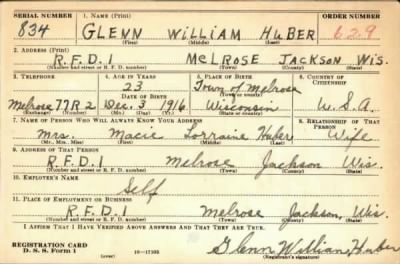 SERIAL NUMBER 1. NAME (Print) ORDER NUMBER
834 GLENN WILLIAM HUBER 629
(First) (Middle) (Last)
2. ADDRESS (Print)
R.F.D.1 MELROSE JACKSON WIS.
(Number and street or R. F. D. number) (Town) (County) (State)
3. TELEPHONE 4. AGE IN YEARS 5. PLACE OF BIRTH 6. COUNTRY OF CITIZENSHIP
23 Town of Melrose
DATE OF BIRTH (Town or county)
Melrose 77R2 Dec. 3, 1916 Wisconsin U.S.A.
(Exchange) (Number) (Mo.) (Day) (Yr.) (State or country)
7. NAME OF PERSON WHO WILL ALWAYS KNOW YOUR ADDRESS 8. RELATIONSHIP OF THAT PERSON
Mrs. Macie Lorraine Huber Wife
(Mr., Mrs., Miss) (First) (Middle) (Last)
9. ADDRESS OF THAT PERSON
R.F.D.1 Melrose Jackson Wis.
(Number and street or R. F. D. number) (Town) (County) (State)
10. EMPLOYER'S NAME
Self
11. PLACE OF EMPLOYMENT OR BUSINESS
R.F.D.1 Melrose Jackson, Wis.
(Number and street or R. F. D. number) (Town) (County) (State)
I AFFIRM THAT I HAVE VERIFIED ABOVE ANSWERS AND THAT THEY ARE TRUE.
REGISTRATION CARD
D. S. S. Form 1 (over) Glenn William Huber
(Registrant's signature)